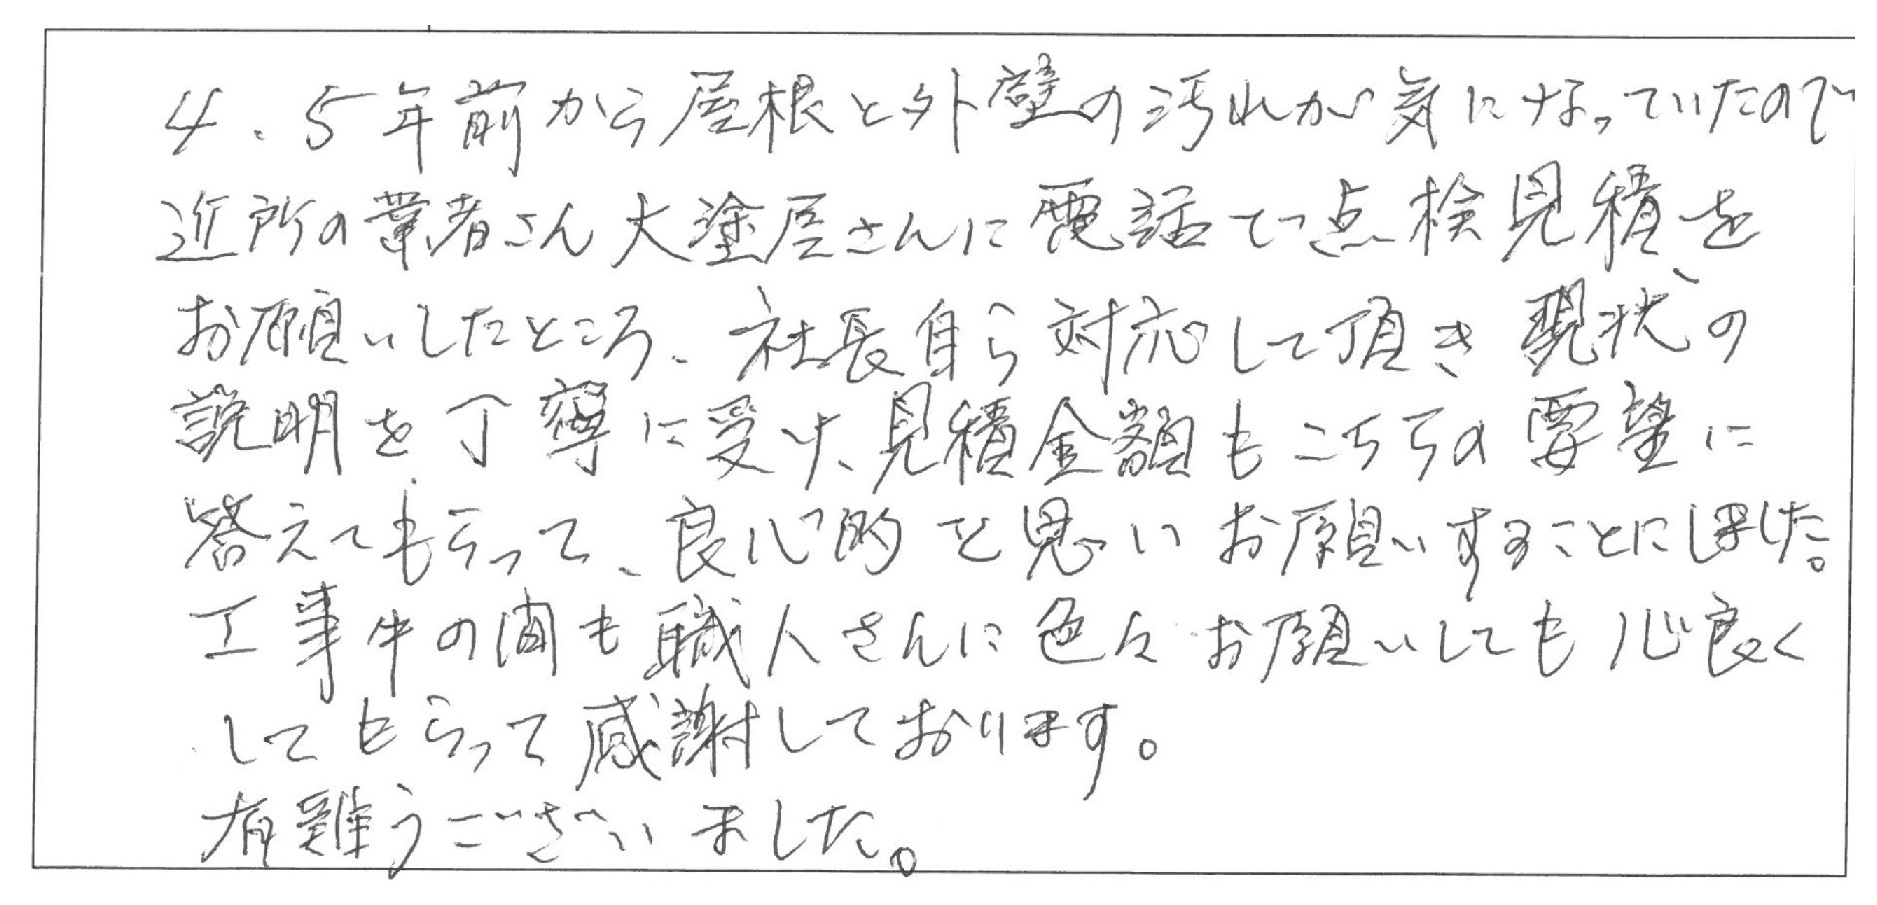 4、5年前から屋根と外壁の汚れが気になっていたので
近所の業者さん大塗屋さんに電話で点検見積を
お願いしたところ、社長自ら対応して頂き現状の
説明を丁寧に受け、見積金額もこちらの要望に
答えてもらって、良心的と思いお願いすることにしました。
工事中の間も職人さんに色々お願いしても心良く
してもらって感謝しております。
有難うございました。